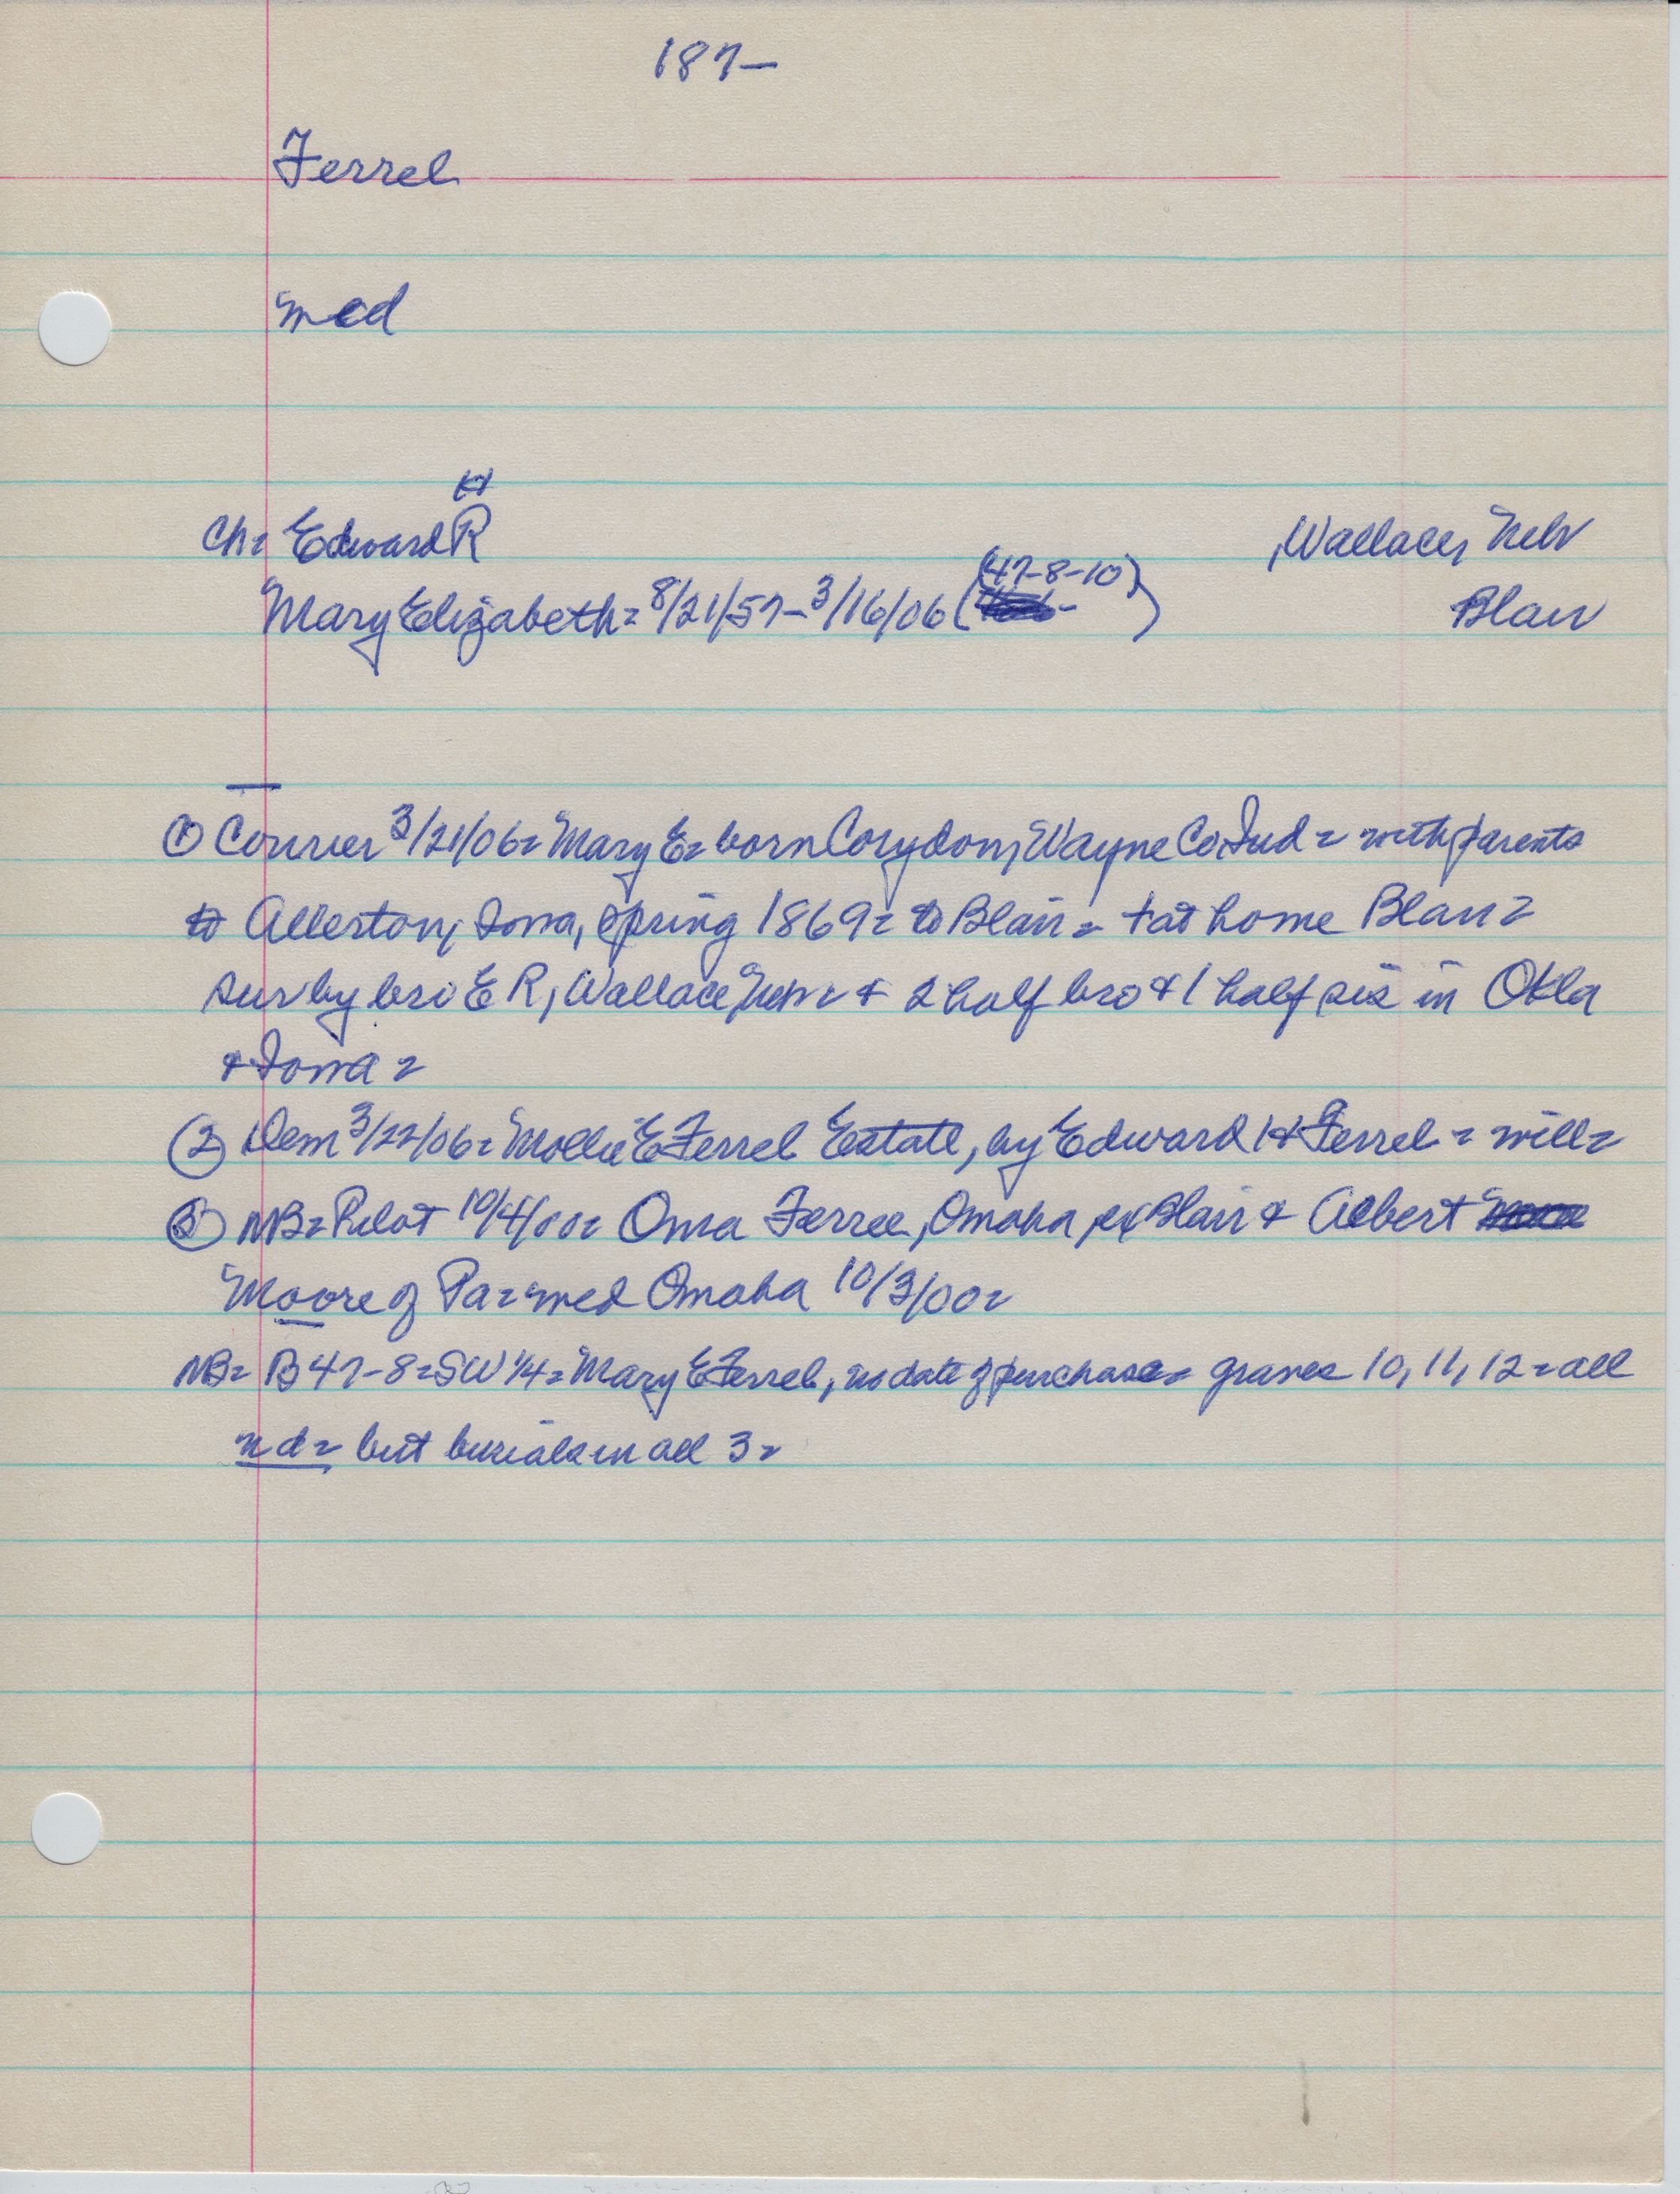 187-
Ferrel
med
H
Ch= Edward R , Wallace, Neb
(47-8-10)
Mary Elizabeth= 8/21/57-3/16/06 ( - ) Blair
① Courier 3/21/06= Mary E= born Corydon, Wayne Co, Ind = with parents
to Allerton, Iowa, spring 1869= to Blair= † at home Blair=
sur by bro E R, Wallace, Neb= + 2 half bro + 1 half sis in Okla
+ Iowa=
② Dem 3/22/06= Mollie E Ferrel Estate, by Edward H Ferrel = will=
③ NB= Pilot 10/4/00= Oma Ferree, Omaha, ex Blair + Albert
Moore of Pa= med Omaha 10/3/00=
NB= B 47-8=SW 1/4= Mary E Ferrel, no date of purchase= graves 10, 11, 12= all
nd= but burials in all 3=